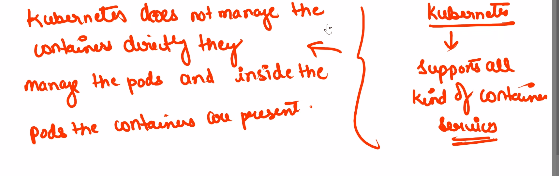 Kubernetes does not manage the
containers directly they
manage the pods and inside the
pods the containers are present.
Kubernetes
supports all
kind of container
services